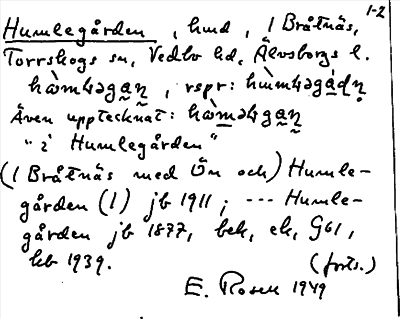 1-2
Humlegården, hmd, 1 Bråtnäs,
Torrskogs sn, Vedbo hd, Älvsborgs l.
hòm4əgaṇ, rspr: hùm4əgádṇ
Även upptecknat: hòmə4gaṇ
"i Humlegården"
(1 Bråtnäs med Ön och) Humle-
gården (1) jb 1911; --- Humle-
gården jb 1877, bek, ek, G61,
kb 1939. (forts.)
E. Rosell 1949